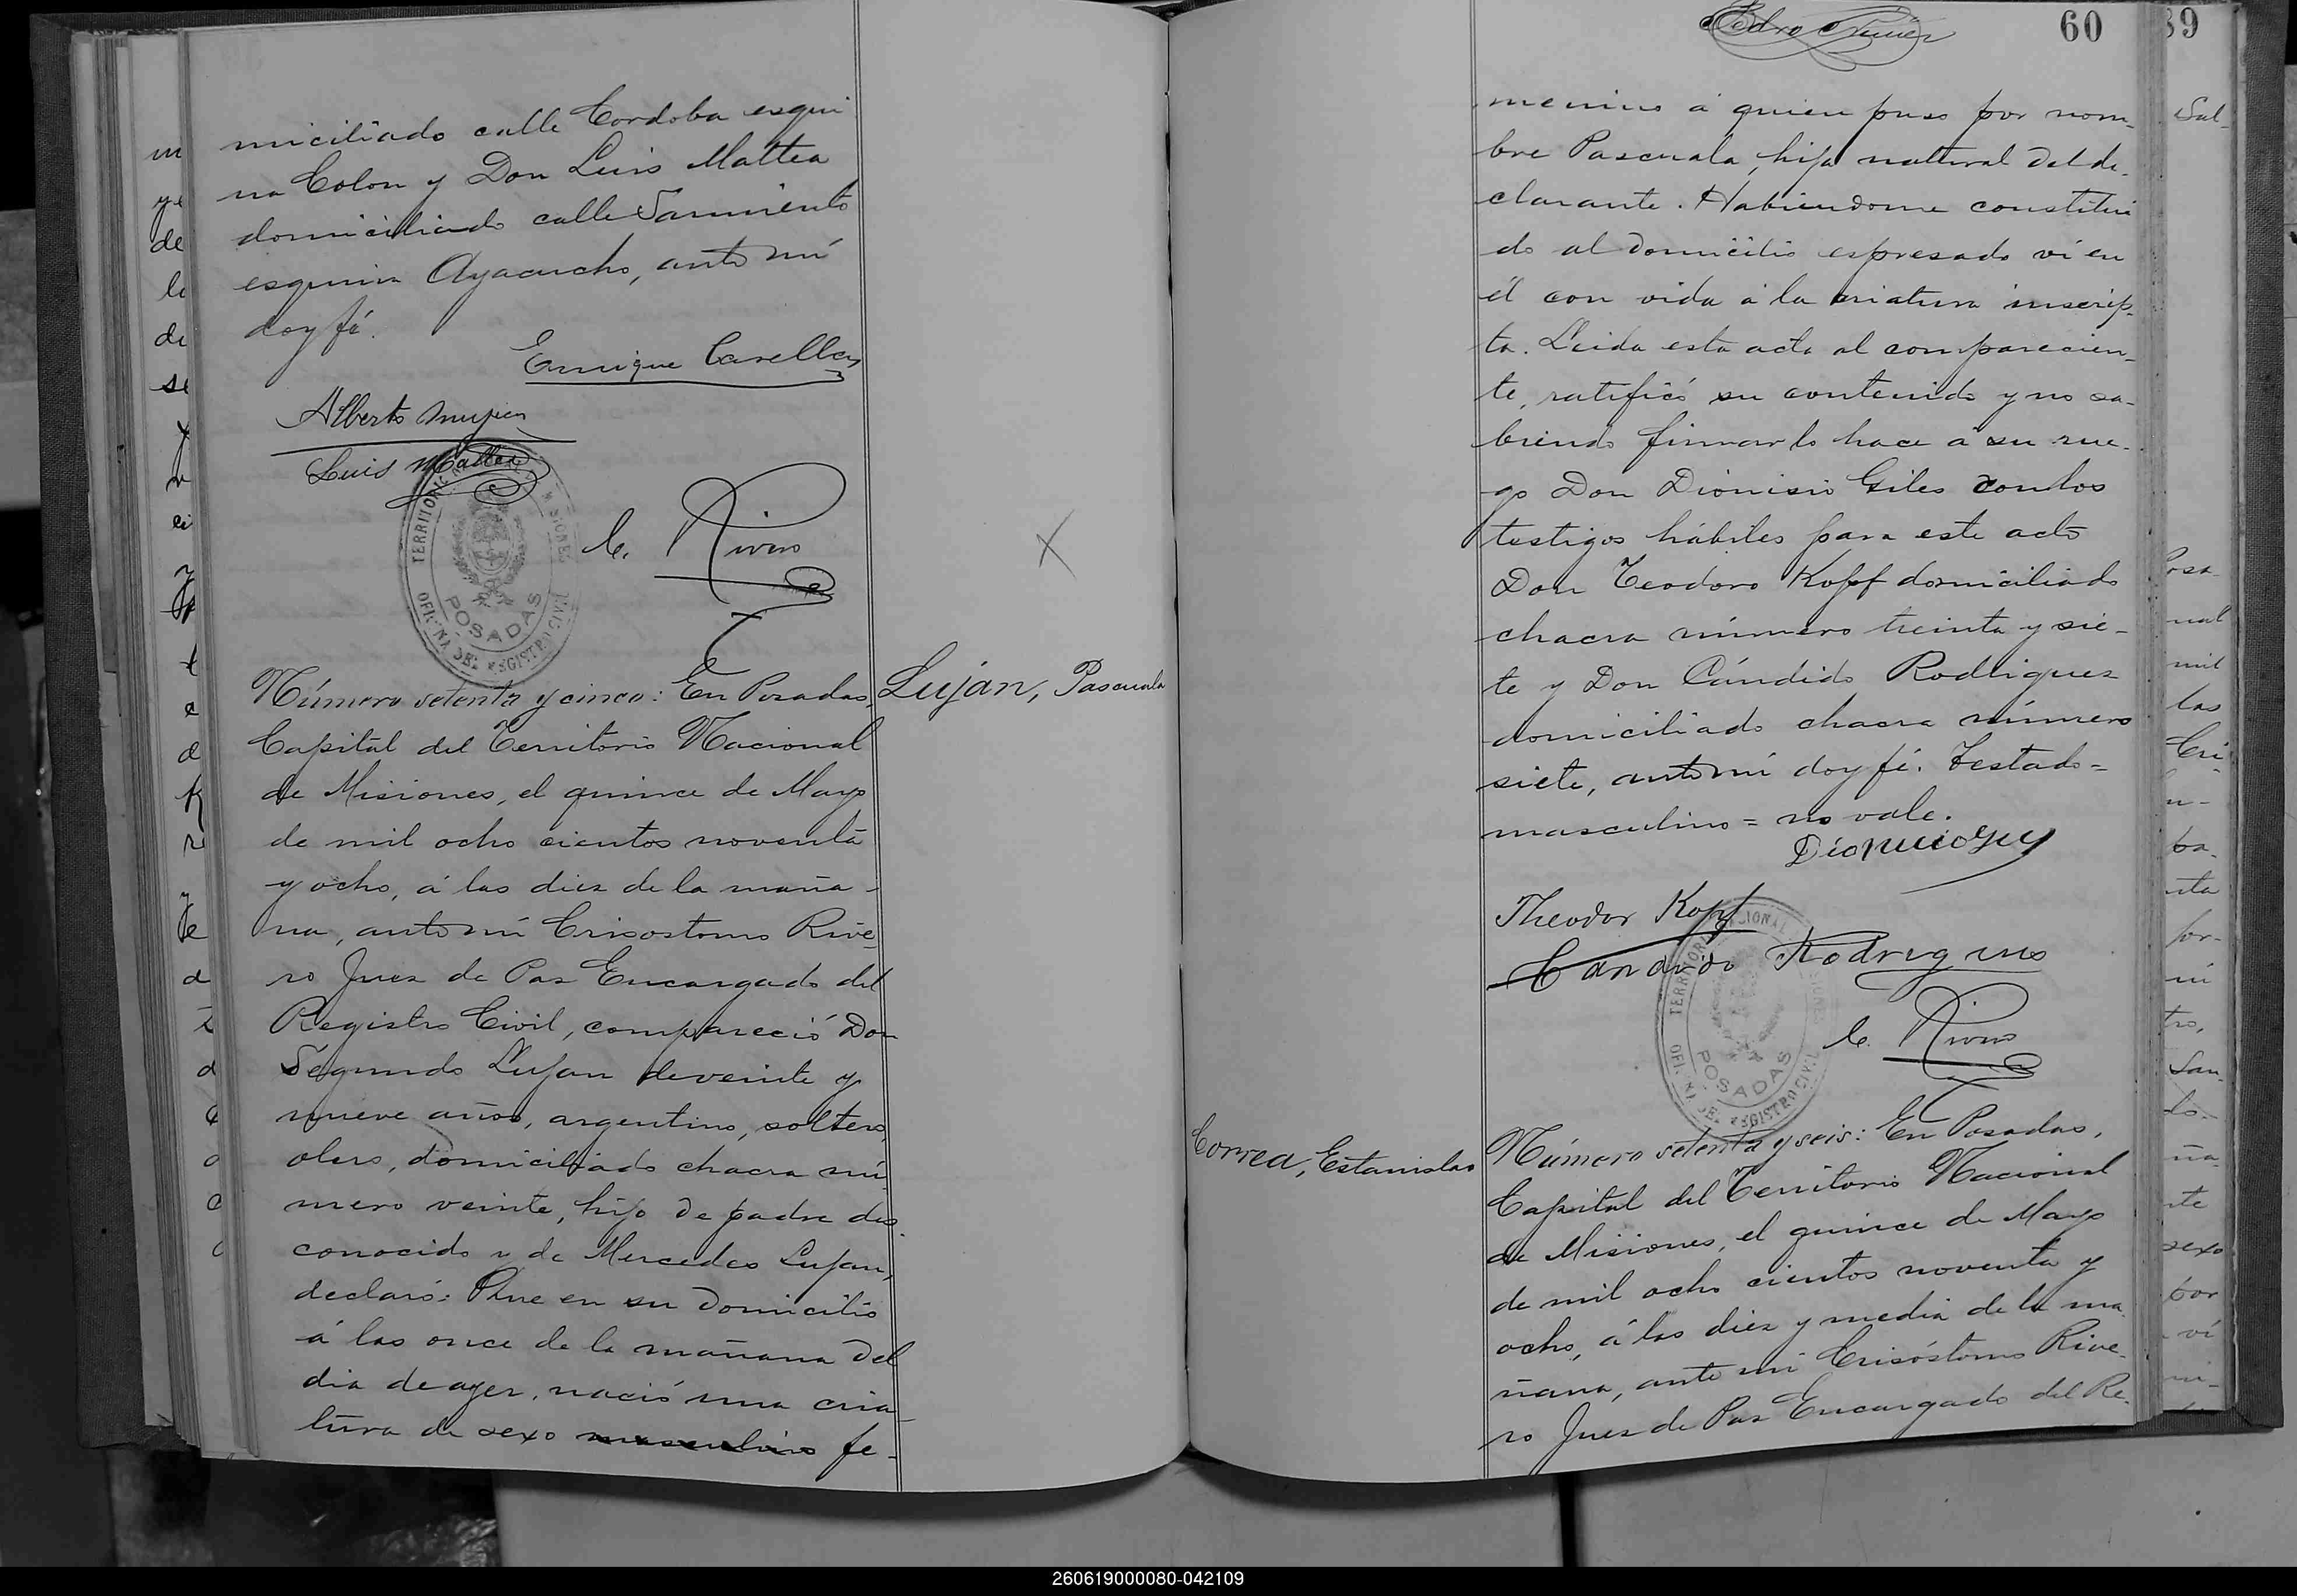 miciliado calle Cordoba esqui
na Colon y Don Luis Mattea
domiciliado calle Sarmiento
esquina Ayacucho, ante mí
doy fé.
Enrique Carellas
Alberto
Luis Mattea
C. Rivero
TERRITORIO NACIONAL MISIONES
POSADAS
OFICINA DEL REGISTRO CIVIL
Número setenta y cinco: En Posadas,
Luján, Pascuala
Capital del Territorio Nacional
de Misiones, el quince de Mayo
de mil ocho cientos noventa
y ocho, á las diez de la maña-
na, ante mí Crisostomo Rive-
ro Juez de Paz Encargado del
Registro Civil, compareció Don
Segundo Lujan de veinte y
nueve años, argentino, soltero,
olero, domiciliado chacra nú-
mero veinte, hijo de padre des-
conocido y de Mercedes Lujan,
declaró: Que en su domicilio
á las once de la mañana del
dia de ayer, nació una cria-
tura de sexo masculino fe-
60
menino á quien puso por nom-
bre Pascuala, hija natural del de-
clarante. Habiendome constitui
do al domicilio espresado ví en
él con vida á la criatura inscrip-
ta. Leida esta acta al comparecien-
te, ratificó su contenido y no sa-
biendo firmar lo hace á su rue-
go Don Dionisio Giles con los
testigos hábiles para este acto
Don Teodoro Kopf domiciliado
chacra número treinta y sie-
te y Don Cándido Rodriguez
domiciliado chacra número
siete, ante mí doy fé. Testado=
masculino= no vale.
Theodor Kopf
Candido Rodrigues
C. Rivero
TERRITORIO NACIONAL MISIONES
POSADAS
OFICINA DEL REGISTRO CIVIL
Correa, Estanislao
Número setenta y seis: En Posadas,
Capital del Territorio Nacional
de Misiones, el quince de Mayo
de mil ocho cientos noventa y
ocho, á las diez y media de la ma-
ñana, ante mí Crisóstomo Rive-
ro Juez de Paz Encargado del Re-
89
260619000080-042109